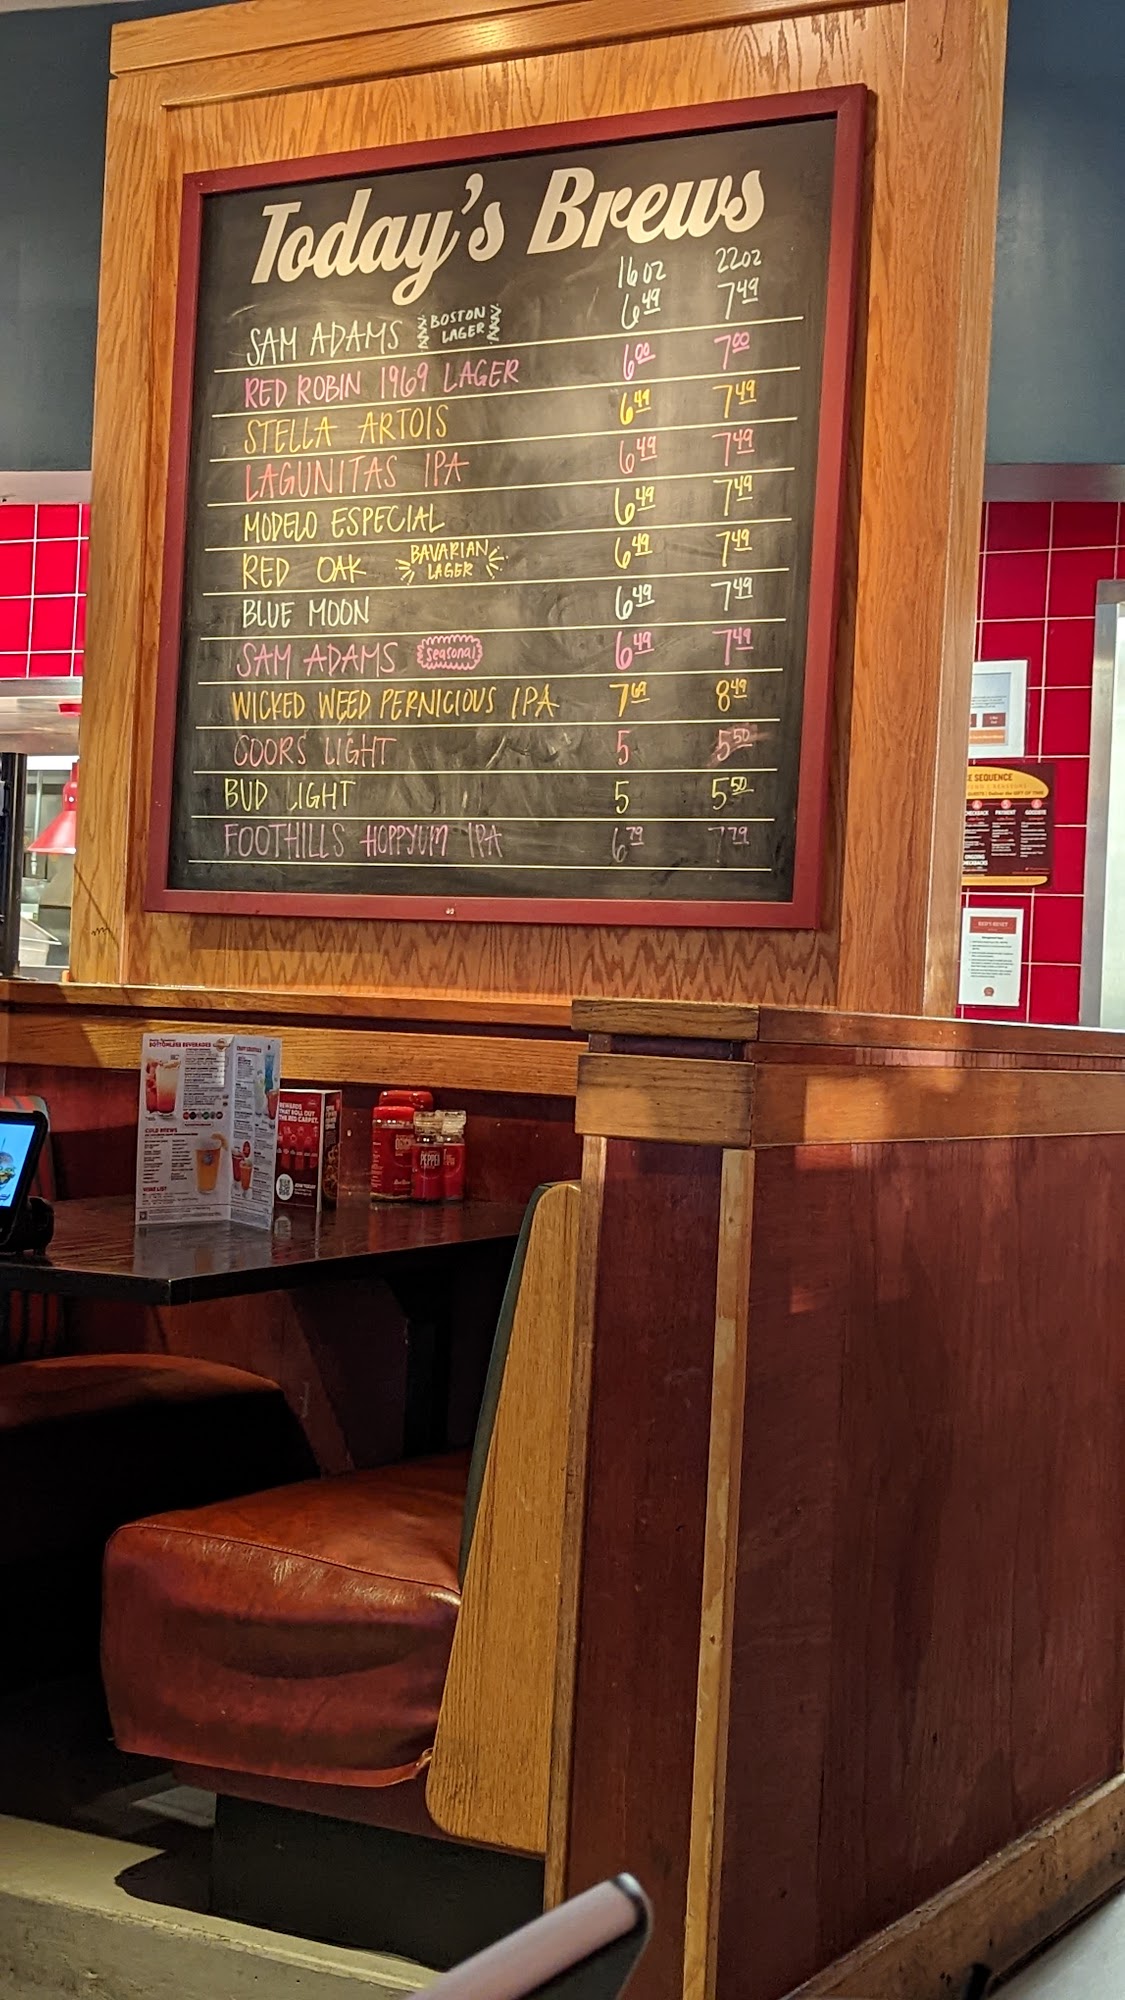 Today's Brews
16oz 22oz
SAM ADAMS BOSTON LAGER 6.49 7.49
RED ROBIN 1969 LAGER 6.00 7.00
STELLA ARTOIS 6.49 7.49
LAGUNITAS IPA 6.49 7.49
MODELO ESPECIAL 6.49 7.49
RED OAK BAVARIAN LAGER 6.49 7.49
BLUE MOON 6.49 7.49
SAM ADAMS Seasonal 6.49 7.49
WICKED WEED PERNICIOUS IPA 7.69 8.49
COORS LIGHT 5 5.50
BUD LIGHT 5 5.50
FOOTHILLS HOPPYUM IPA 6.79 7.79
CE SEQUENCE
4 5 6
PAYMENT GOODBYE
BOTTOMLESS BEVERAGES
COLD BREWS
WINE LIST
REWARDS
THAT ROLL OUT
THE RED CARPET.
PEPPER